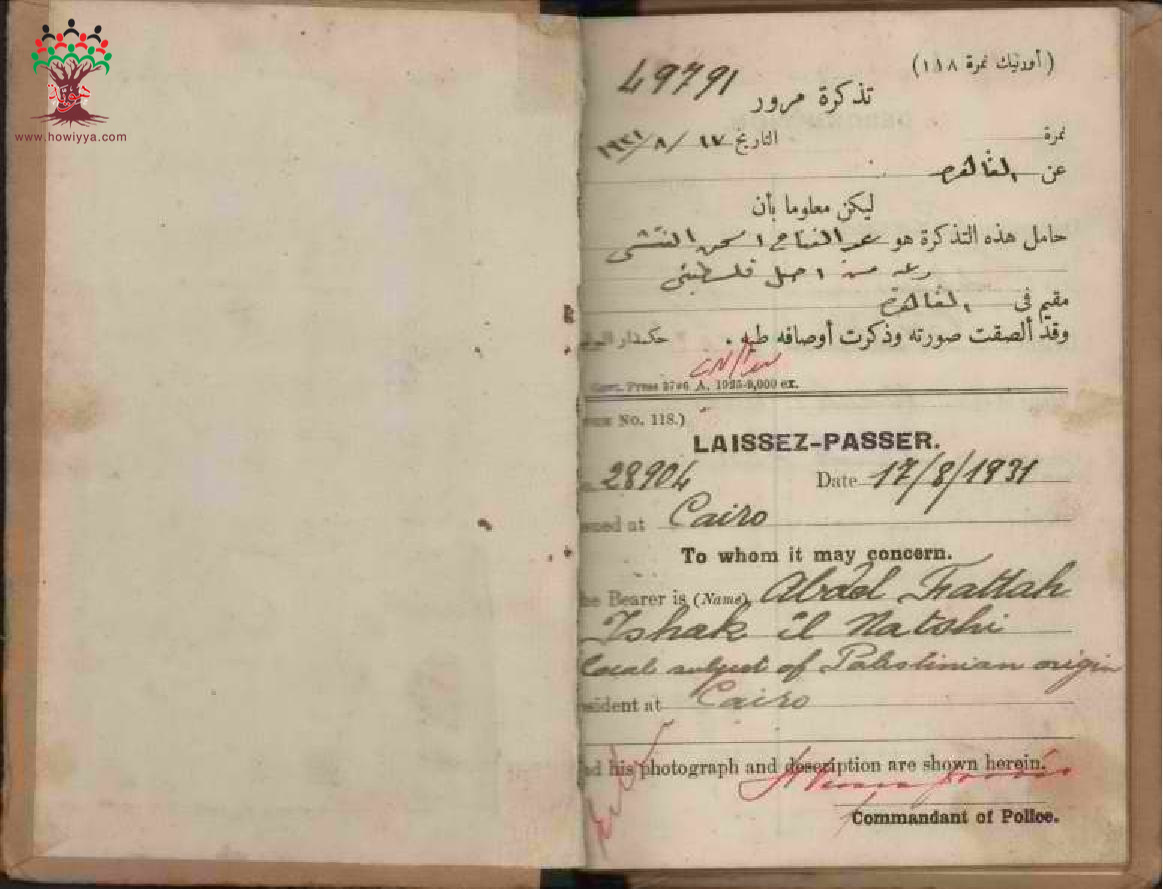 هويّة
www.howiyya.com
(أورنيك نمرة ١١٨)
49791
تذكرة مرور
نمرة التاريخ ١٧/ ٨/ ١٩٣١
عن القاهرة
ليكن معلوما بأن
حامل هذه التذكرة هو عبد الفتاح اسحق النتشى
رعيه من اصل فلسطينى
مقيم فى القاهرة
وقد ألصقت صورته وذكرت أوصافه طيه . حكمدار
Govt. Press 3796 A. 1925-9,000 ex.
No. 118.)
LAISSEZ-PASSER.
28904 Date 17/8/1931
sued at Cairo
To whom it may concern.
he Bearer is (Name) Abdel Fattah
Ishak il Natshi
local subject of Palestinian origin
sident at Cairo
d his photograph and description are shown herein.
Commandant of Police.